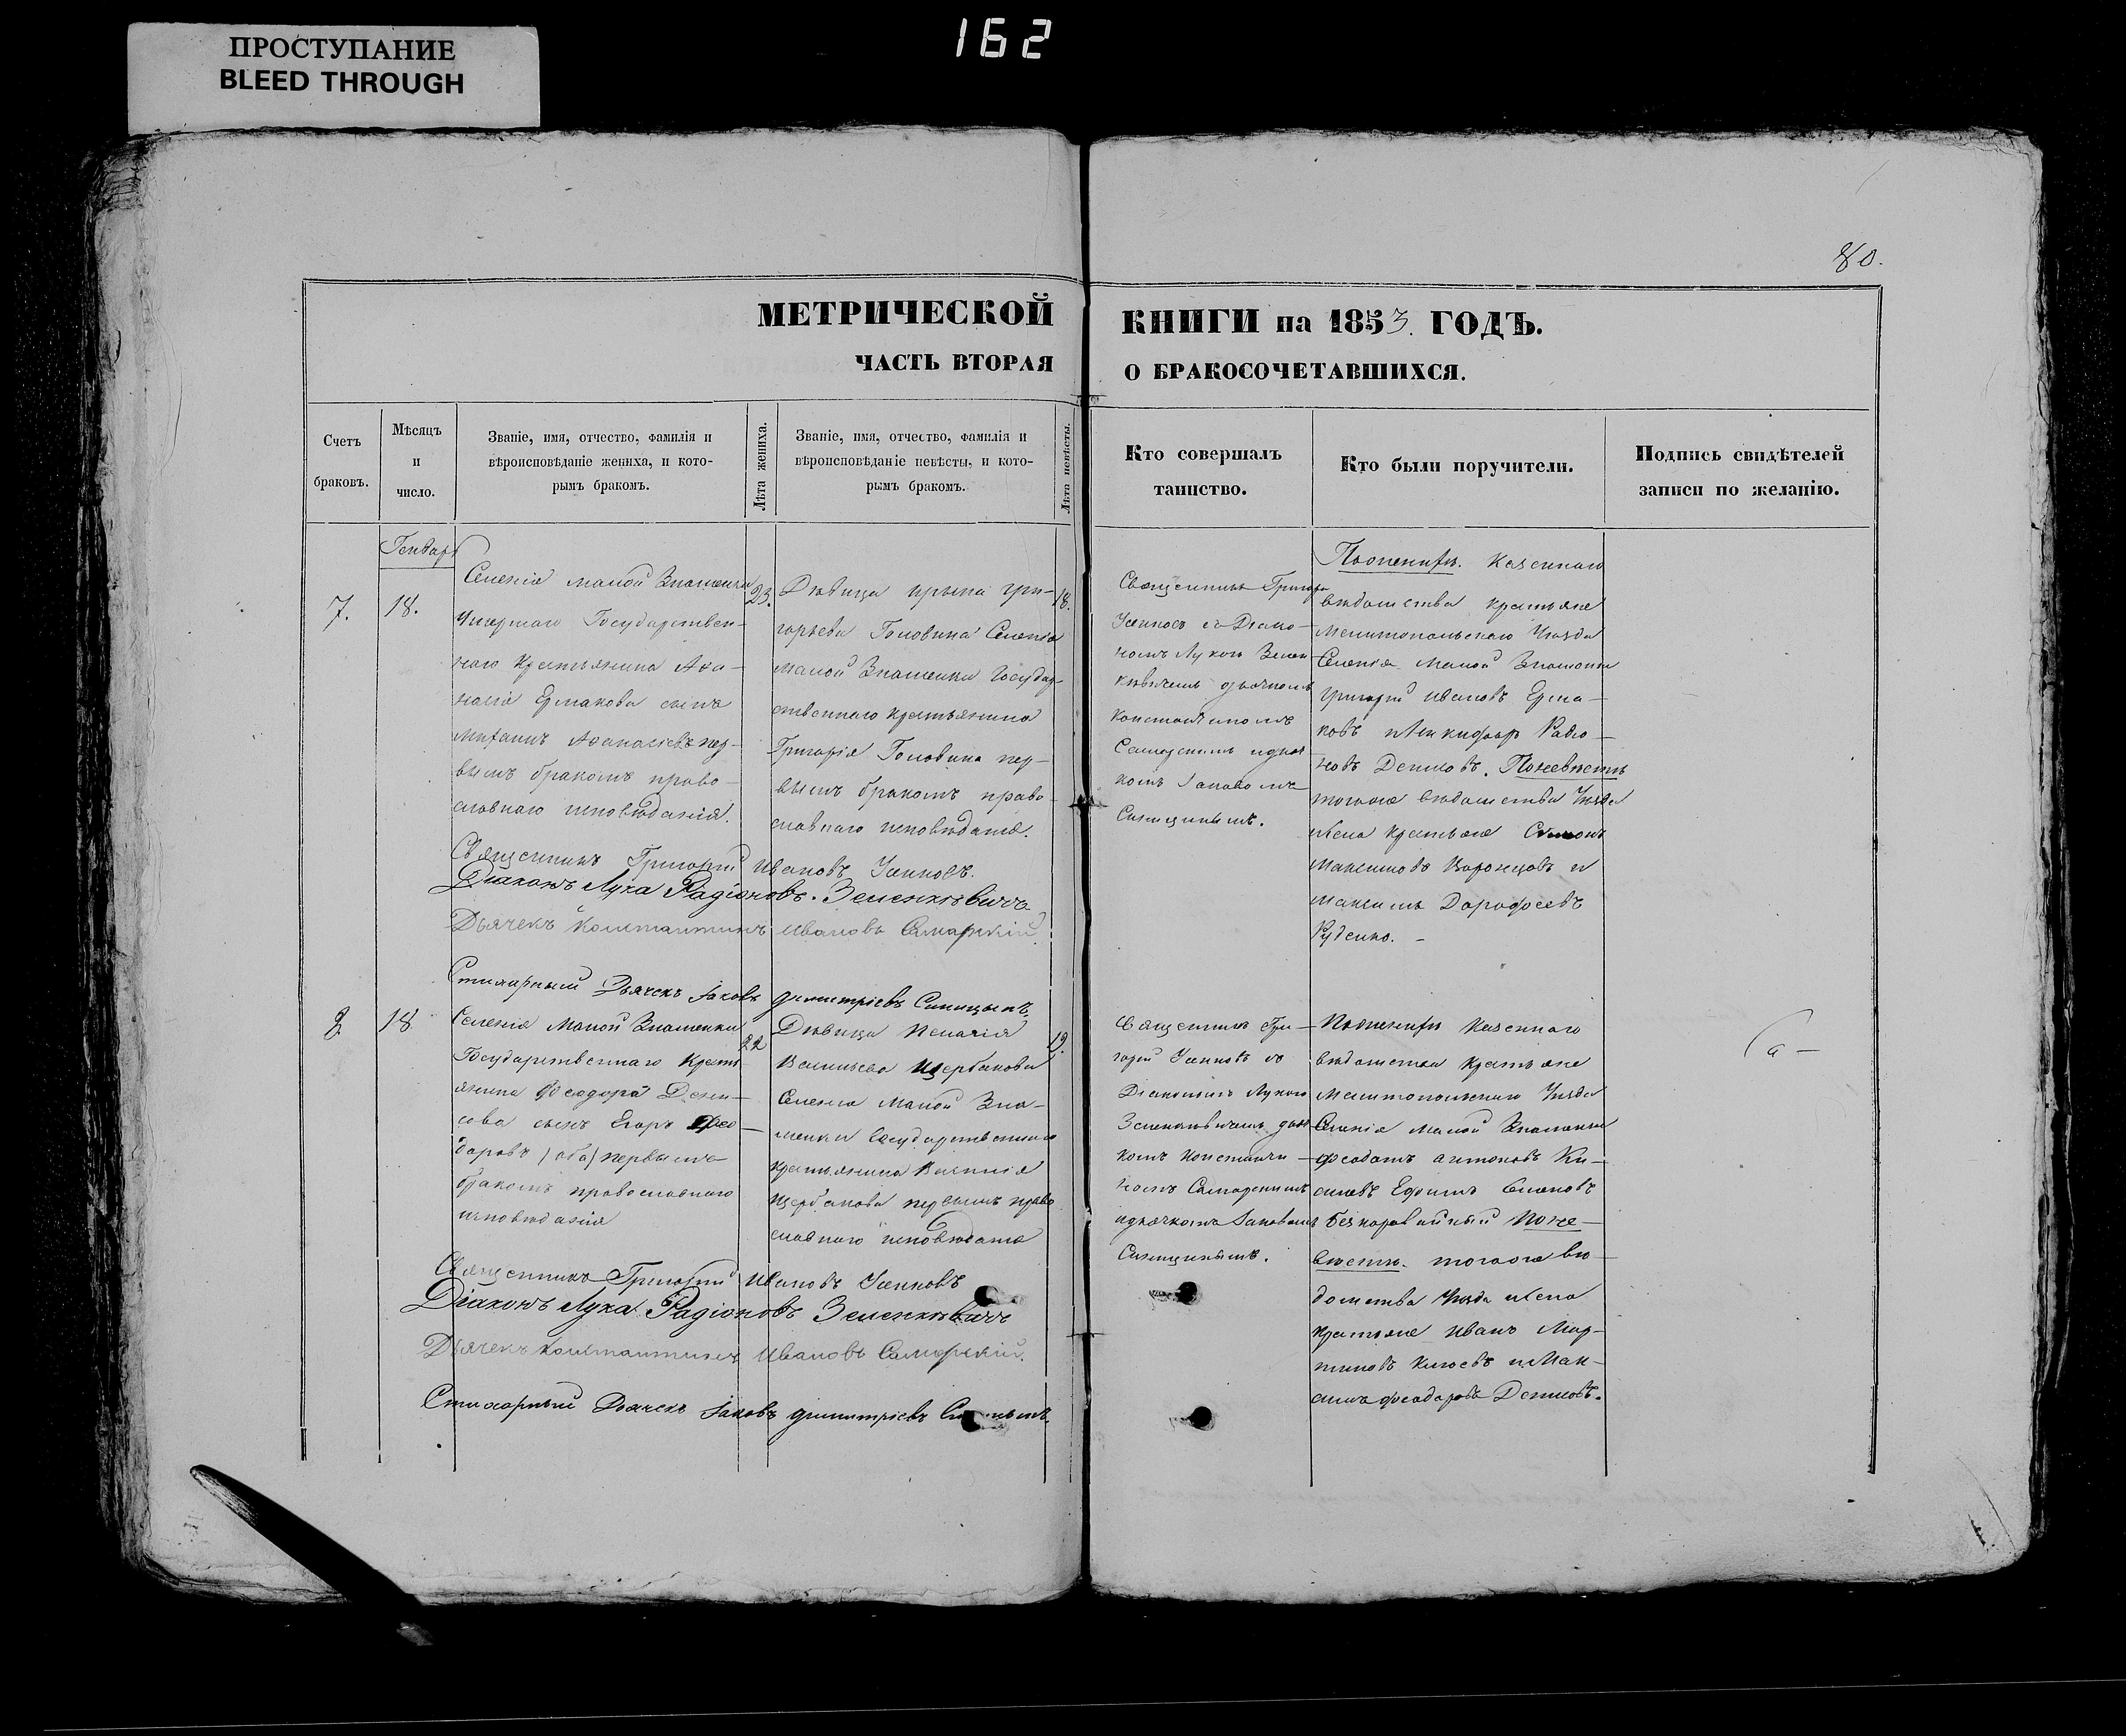 ПРОСТУПАНИЕ
BLEED THROUGH
162
80.
МЕТРИЧЕСКОЙ
КНИГИ на 1853. ГОДЪ.
ЧАСТЬ ВТОРАЯ
О БРАКОСОЧЕТАВШИХСЯ.
Счетъ
браковъ.
Мѣсяцъ
и
число.
Званіе, имя, отчество, фамилія и
вѣроисповѣданіе жениха, и кото-
рымъ бракомъ.
Лѣта жениха.
Званіе, имя, отчество, фамилія и
вѣроисповѣданіе невѣсты, и кото-
рымъ бракомъ.
Лѣта невѣсты.
Кто совершалъ
таинство.
Кто были поручители.
Подпись свидѣтелей
записи по желанію.
Генваря
7.
18.
Селенія малой Знаменки
Государствен-
наго Крестьянина Афа-
насія Ермакова сынъ
Афанасіевъ пер-
вымъ бракомъ право-
славнаго исповѣданія.
23.
Дѣвица Ирина Гри-
горьева Головина Селенія
малой Знаменки Государ-
ственнаго крестьянина
Григорія Головина пер-
вымъ бракомъ право
славнаго исповѣданія.
18.
Священникъ Григорій
съ Діако-
номъ Лукою Зелен
кѣвичемъ дьячкомъ
Константиномъ
Самарскимъ и дьяч
комъ Іаковомъ
Синицынымъ.
По женихѣ. Казеннаго
вѣдомства крестьяне
Мелитопольскаго Уѣзда
Селенія Малой Знаменки
Григорій Ивановъ Ерма-
ковъ и Никифоръ Радіо-
новъ Денисовъ. По невѣстѣ
тогоже вѣдомства Уѣзда
и села крестьяне
Максимовъ Воронцовъ и
Максимъ Дорофеевъ
Руденко. -
Священникъ Григорій Ивановъ
Діаконъ Лука Радіоновъ. Зеленкѣвичъ
Дьячекъ Константинъ Ивановъ Самарскій.
Стихарный Дьячекъ Іаковъ Димитріевъ Синицынъ.
8
18
Селенія Малой Знаменки
Государственнаго Кресть
янина Феодора Дени-
сова сынъ Егоръ Фео-
доровъ (оба) первымъ
бракомъ православнаго
исповѣданія
22
Дѣвица Пелагія
Васильева Щербакова
Селенія Малой Зна-
менки Государственнаго
крестьянина Василія
Щербакова первымъ право
славнаго исповѣданія
19.
Священникъ Гри-
горій съ
Діакономъ Лукою
Зеленкѣвичемъ дьяч
комъ Константи-
номъ Самарскимъ
и дьячкомъ Іаковомъ
Синицынымъ.
По женихѣ Казеннаго
вѣдомства крестьяне
Мелитопольскаго Уѣзда
Селенія Малой Знаменки
Феодотъ Антоновъ Ки-
Ефимъ Семеновъ
Безкоровайный По не-
вѣстѣ. тогоже вѣ-
домства Уѣзда и села
крестьяне Иванъ Мар-
тиновъ и Мак-
симъ Феодоровъ Денисовъ.
Священникъ Григорій Ивановъ
Діаконъ Лука Радіоновъ Зеленкѣвичъ
Дьячекъ Константинъ Ивановъ Самарскій.
Стихарный Дьячекъ Іаковъ Димитріевъ